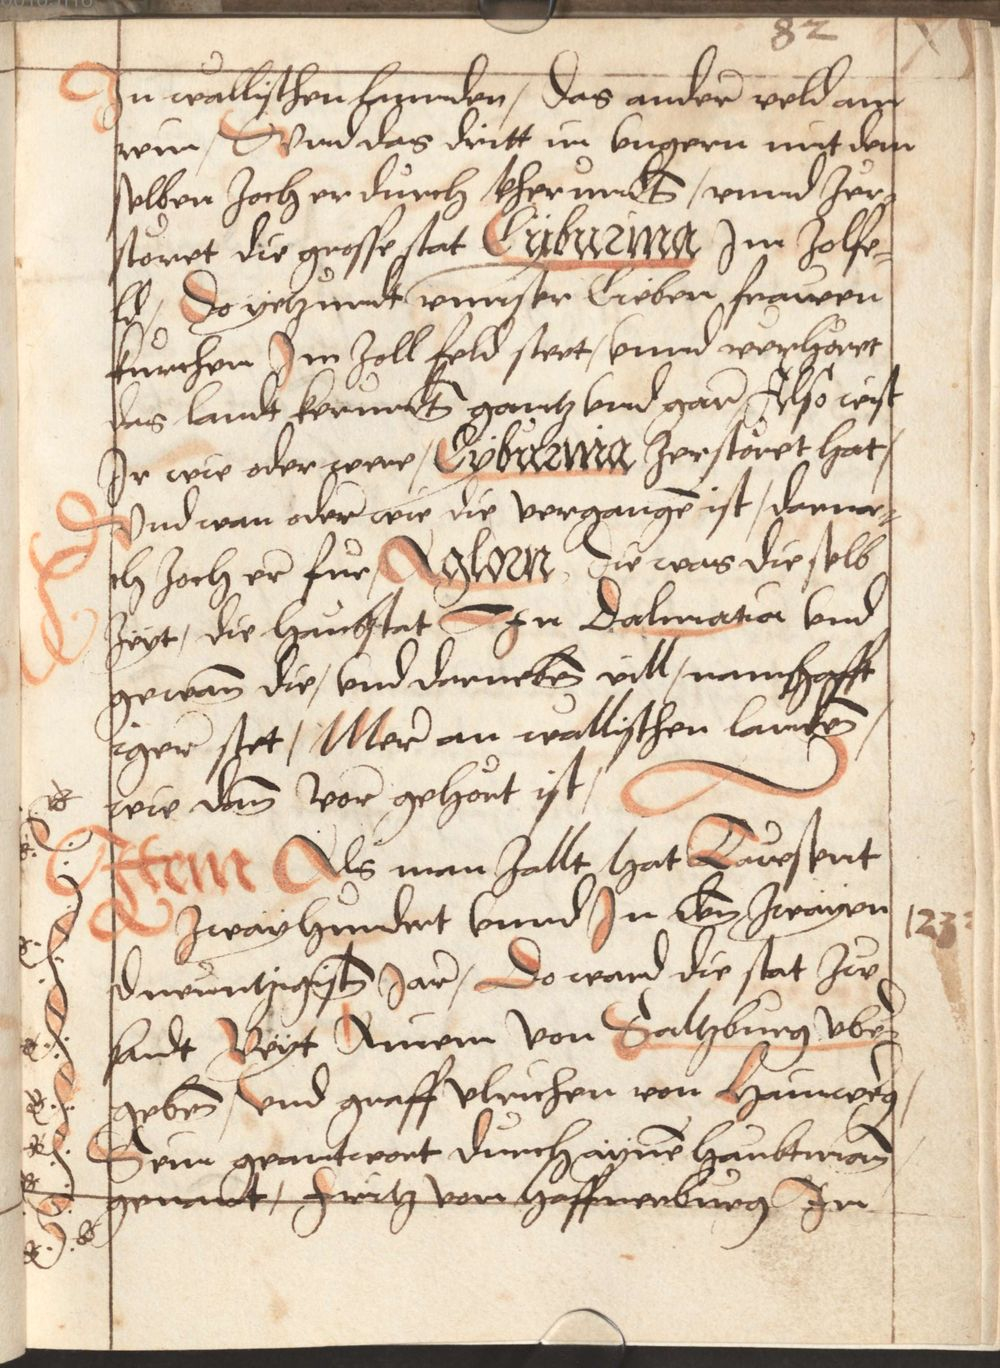 82
In wallischen Lannden / Das ander veld am
rein / Vnd das dritt in Vngern mit dem
selben Zoch er durch kherndtñ / vnnd Zer=
storet die grosse stat Liburnia Im Zolfe=
ld / Do yetzundt vnnser Lieben frawen
kurchen Im Zoll feld stet / vnnd verhöret
das landt kerndtñ gantz vnd gar / Also wist
Ir wie oder wer / Lyburnia Zerstöret hat /
Vnd wan oder wie die vergangñ ist / darna=
ch Zoch er fur / Aglorn, die was die selb
Zeyt / die haubstat In Dalmatia vnd
gewañ die / vnd darnebñ vill / namhafft
iger stet / Mer an wallischen landtñ /
wie dañ vor gehört ist /
Item Als man Zallt hat Tavsent
Zwayhundert vnnd In dem Zwayen
dneuntzigistñ Jar / Do ward die stat Zw
sandt Veyt Ainem von Saltzburg vbe=
gebñ / vnd graff vlrichen von Hainwerg /
Sein geantwort durch aynñ haubtmañ
genant / Fritz von Haffnerburg In
123